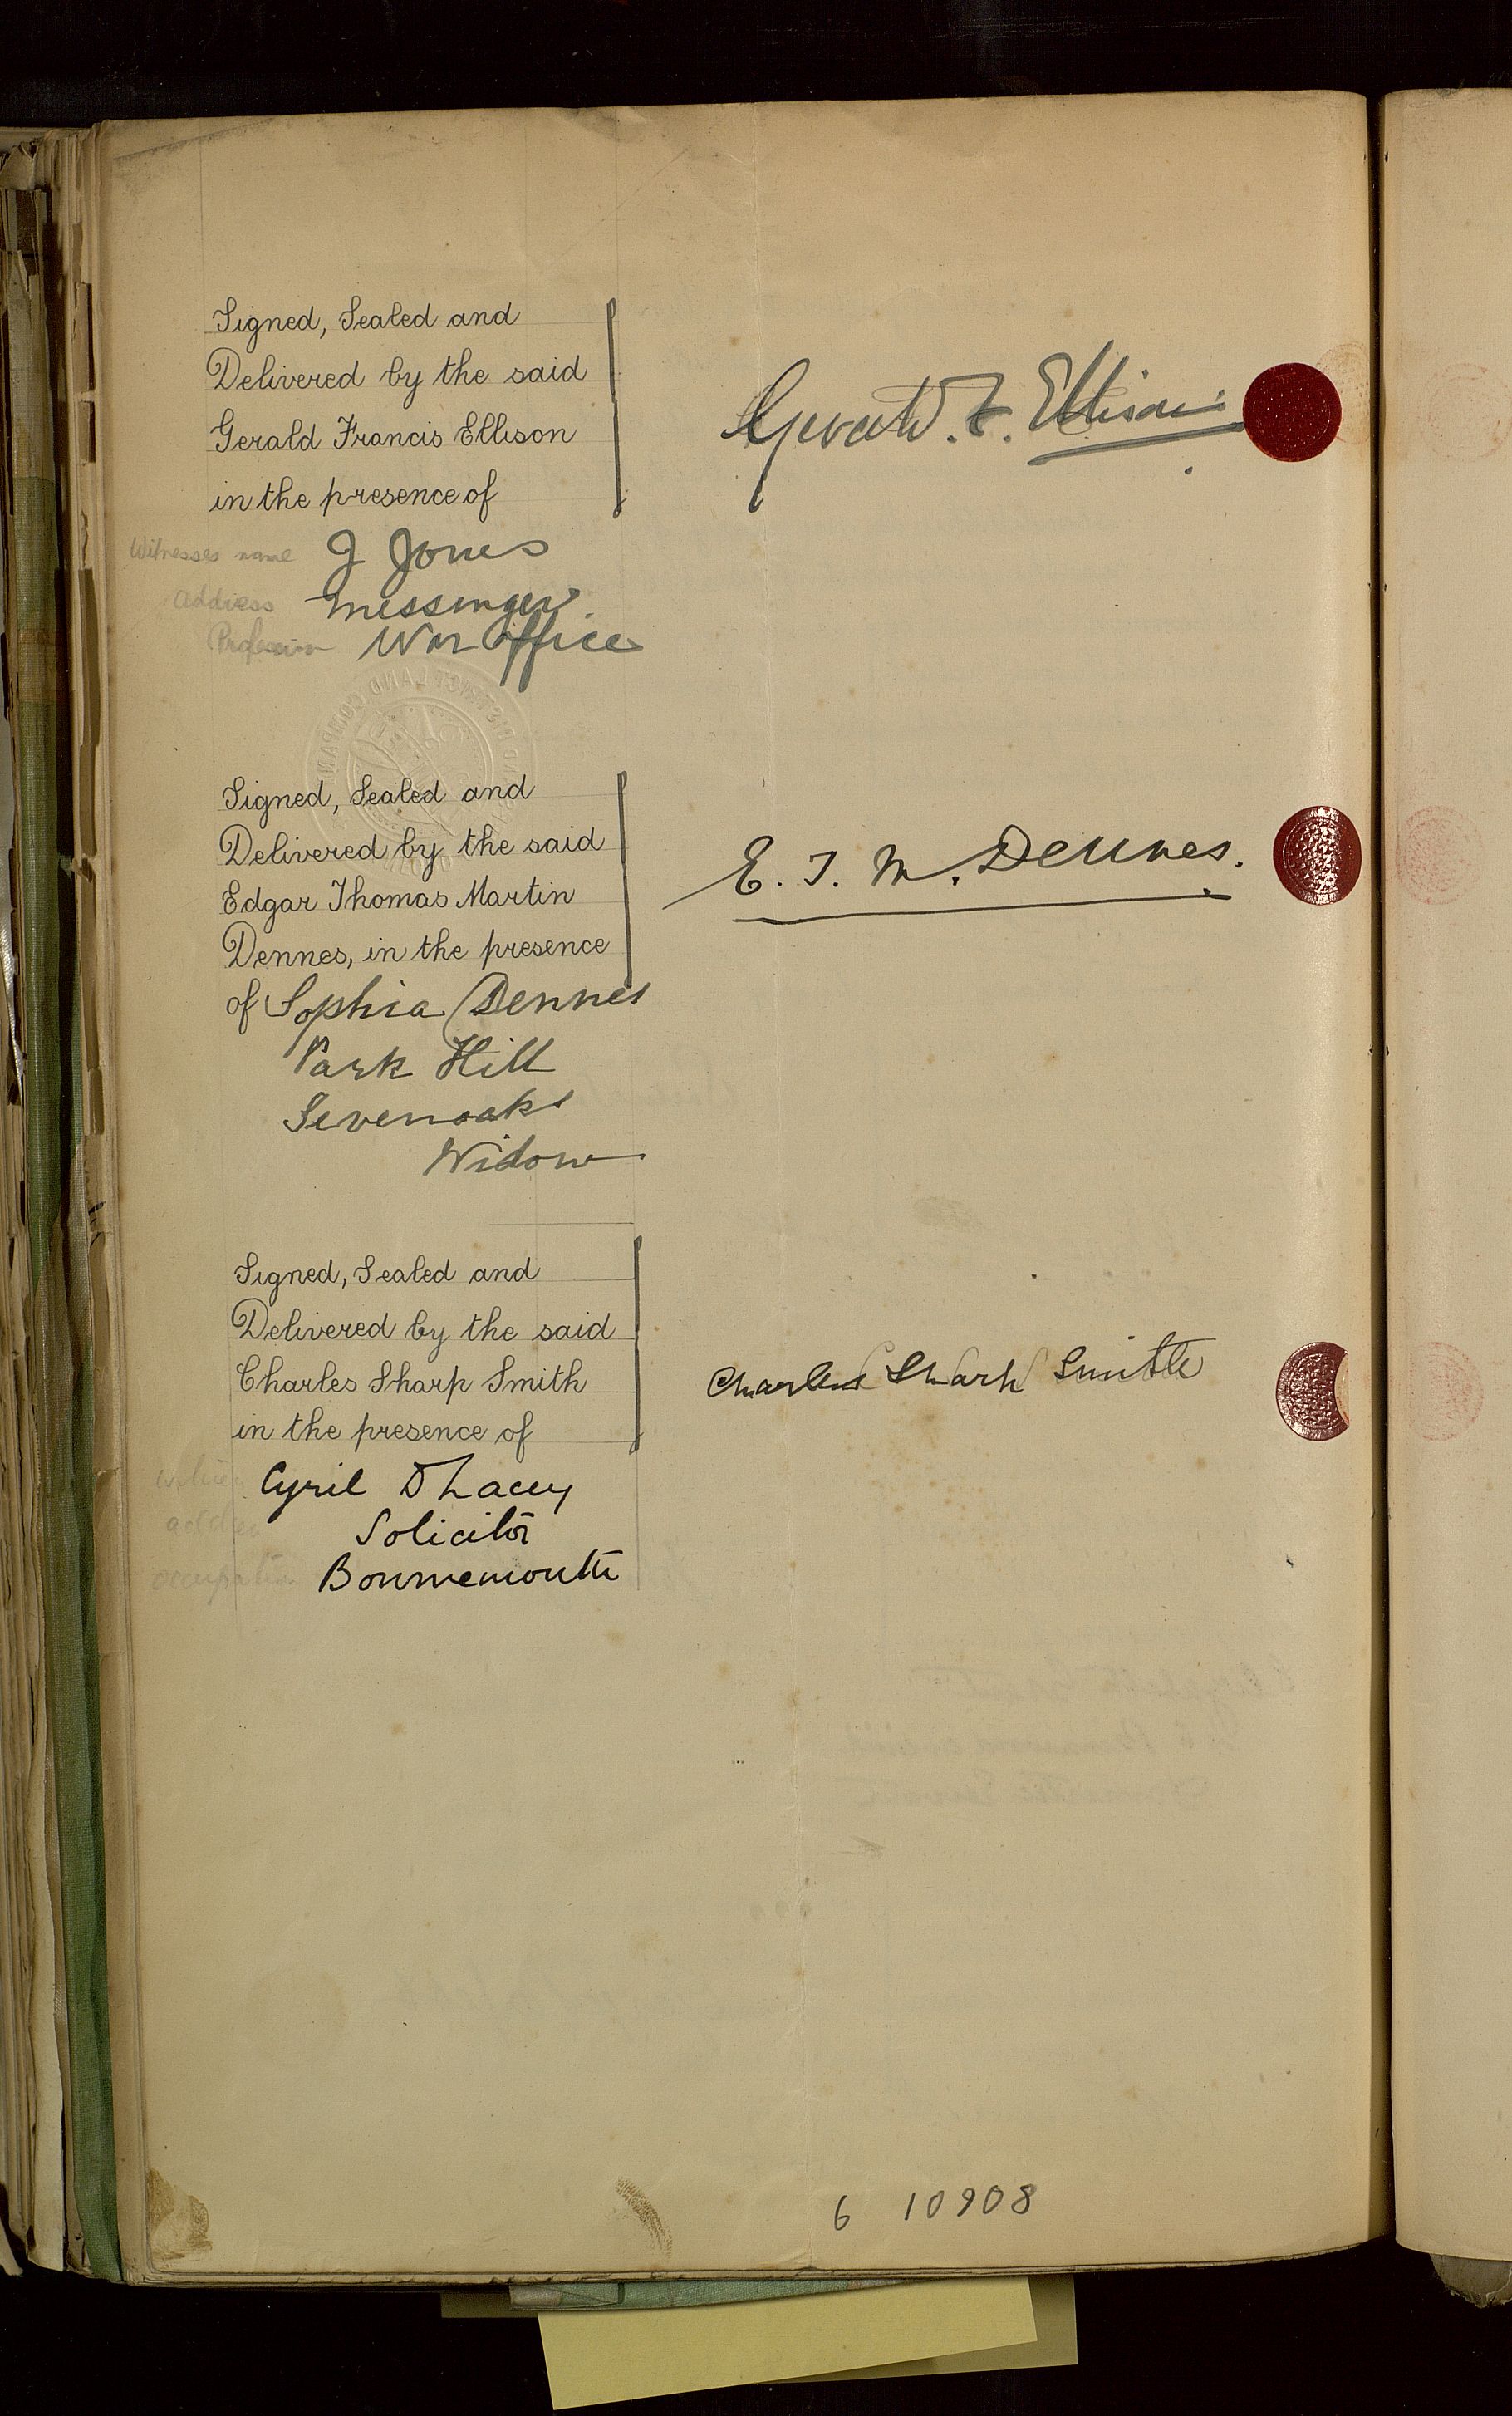 Signed, Sealed and
Delivered by the said
Gerald Francis Ellison
in the presence of
Gerald. F. Ellison
Witnesses name J Jones
Address Messenger.
Profession War Office
Signed, Sealed and
Delivered by the said
Edgar Thomas Martin
Dennes, in the presence
of Sophia Dennes
E. T. M. Dennes.
Park Hill
Sevenoaks
Widow
Signed, Sealed and
Delivered by the said
Charles Sharp Smith
in the presence of
Charles Sharp Smith
Cyril D Lacey
address Solicitor
occupation Bournemouth
6 10908